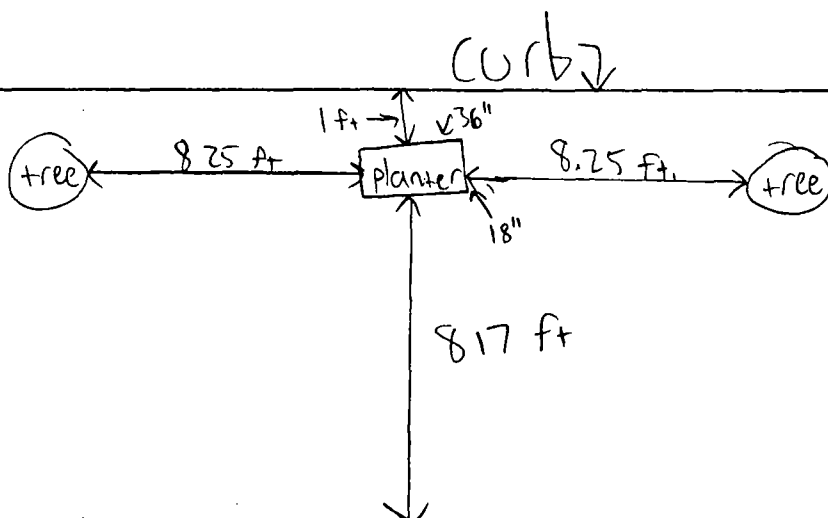 curb
1 ft
36"
tree
8 25 ft
planter
8.25 ft.
tree
18"
8 17 ft